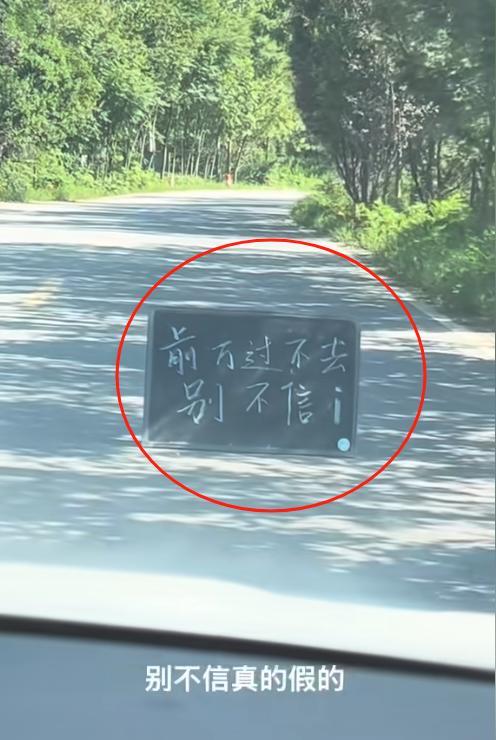 前方过不去
别不信！
别不信真的假的